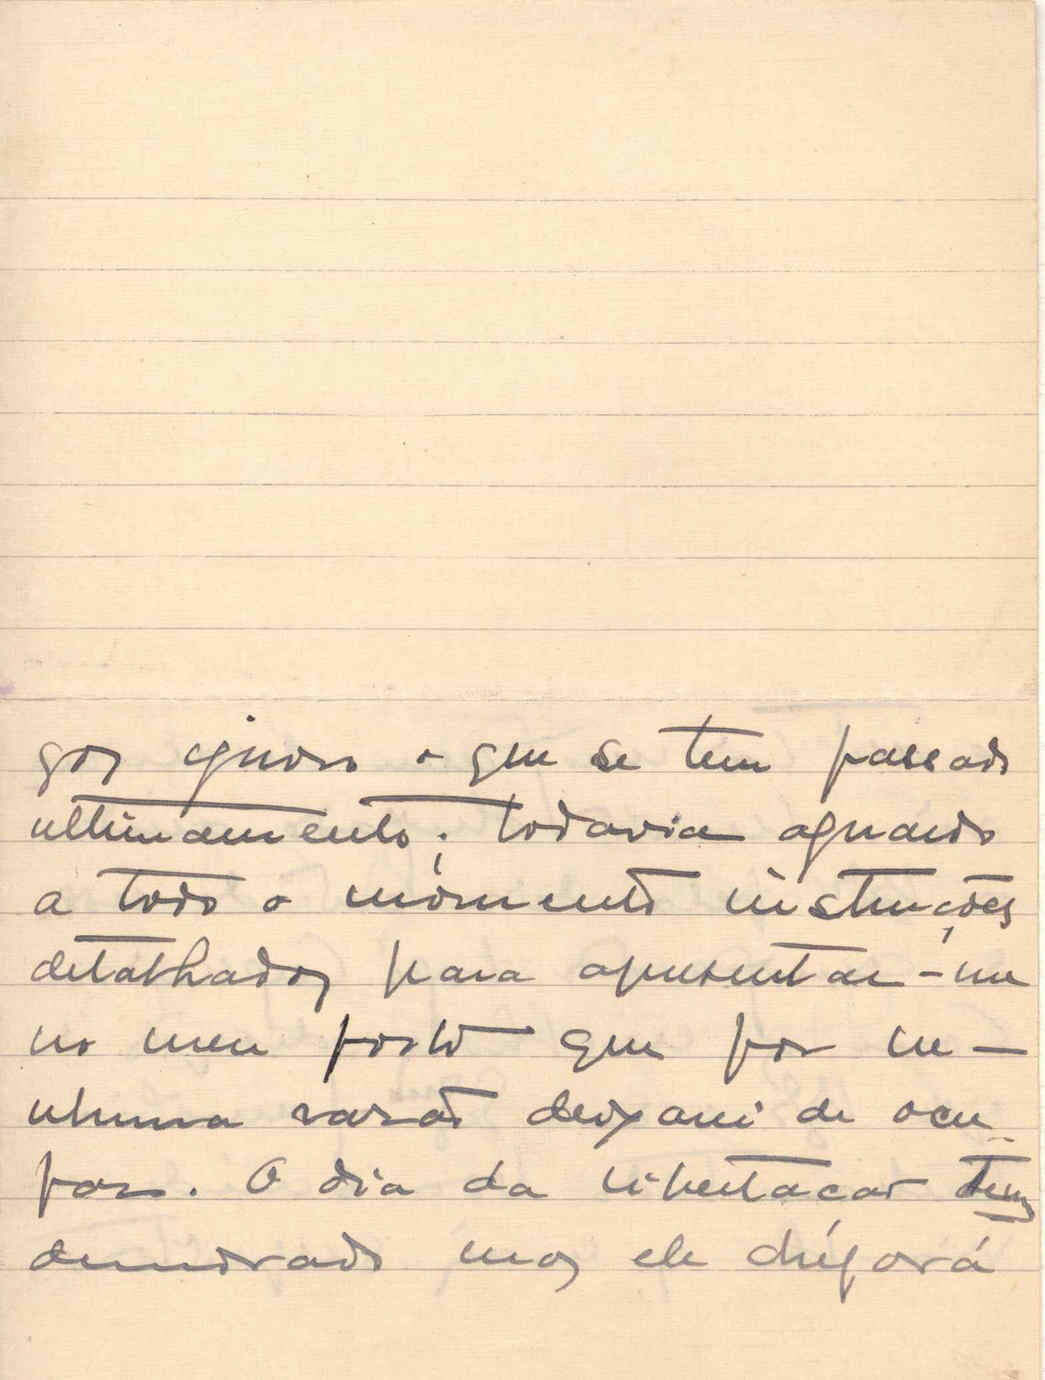 gos ignoro o que se tem passado
ultimamente; todavia aguardo
a todo o momento instruções
detalhados para apresentar-me
no meu posto que por ne-
nhuma razão deixarei de ocu-
par. O dia da libertacao tem
demorado mas ele chegará